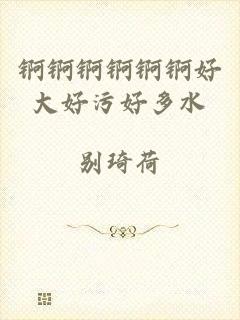 锕锕锕锕锕锕好
大好污好多水
别琦荷